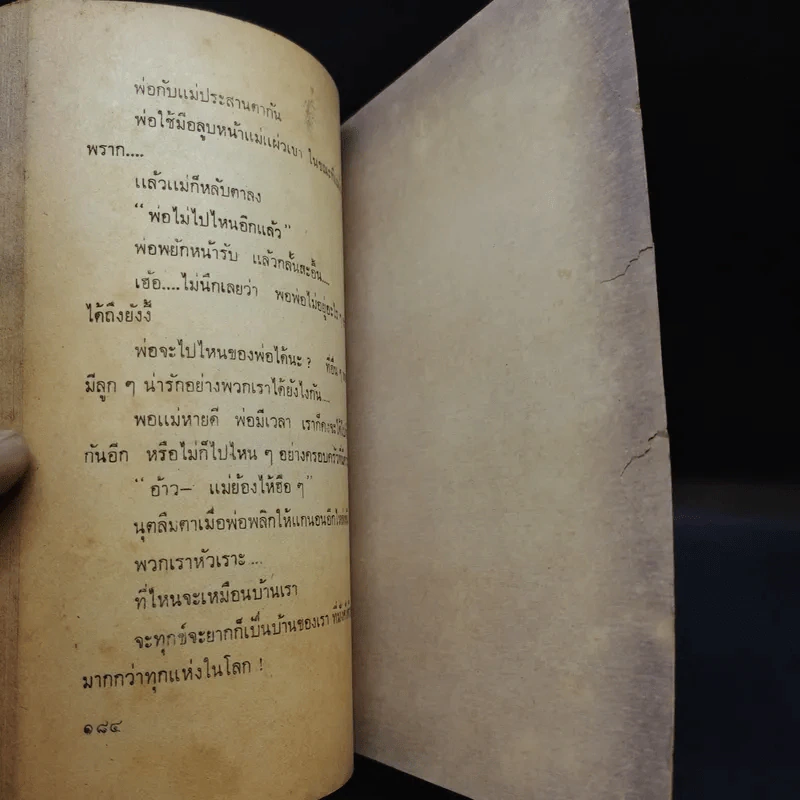 พ่อกับแม่ประสานตากัน
พ่อใช้มือลูบหน้าแม่แผ่วเบา
พราก....
แล้วแม่ก็หลับตาลง
“พ่อไม่ไปไหนอีกแล้ว”
พ่อพยักหน้ารับ แล้วกลั้นสะอื้น...
เฮ้อ....ไม่นึกเลยว่า พอพ่อไม่อยู่อะไร ๆ
ได้ถึงยังงี้
พ่อจะไปไหนของพ่อได้นะ ? ที่อื่น ๆ
มีลูก ๆ น่ารักอย่างพวกเราได้ยังไงกัน...
พอแม่หายดี พ่อมีเวลา เราก็คงจะได้
กันอีก หรือไม่ก็ไปไหน ๆ อย่างครอบครัว
“อ้าว— แม่ย้องไห้ฮือ ๆ”
นุตลืมตาเมื่อพ่อพลิกให้แกนอนอีก
พวกเราหัวเราะ...
ที่ไหนจะเหมือนบ้านเรา
จะทุกข์จะยากก็เป็นบ้านของเรา
มากกว่าทุกแห่งในโลก !
๑๘๔